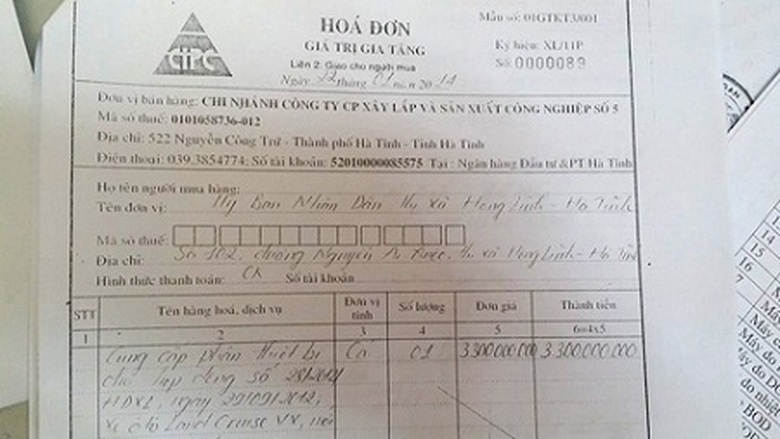 HOÁ ĐƠN
GIÁ TRỊ GIA TĂNG
Liên 2: Giao cho người mua
Ngày 22 tháng 01 năm 2014
Mẫu số: 01GTKT3/001
Ký hiệu: XL/11P
Số: 0000089
Đơn vị bán hàng: CHI NHÁNH CÔNG TY CP XÂY LẮP VÀ SẢN XUẤT CÔNG NGHIỆP SỐ 5
Mã số thuế: 0101058736-012
Địa chỉ: 522 Nguyễn Công Trứ - Thành phố Hà Tĩnh - Tỉnh Hà Tĩnh
Điện thoại: 039.3854774; Số tài khoản: 52010000085575 Tại : Ngân hàng Đầu tư &PT Hà Tĩnh
Họ tên người mua hàng:
Tên đơn vị: Uỷ Ban Nhân Dân thị xã Hồng Lĩnh - Hà Tĩnh
Mã số thuế:
Địa chỉ: Số 102, đường Nguyễn thị xã Hồng Lĩnh - Hà Tĩnh
Hình thức thanh toán: CK Số tài khoản
STT Tên hàng hoá, dịch vụ Đơn vị tính Số lượng Đơn giá Thành tiền
1 2 3 4 5 6=4x5
Cung cấp phần thiết bị Cái 01 3.300.000.000 3.300.000.000
cho hợp đồng số 28/2012
HĐXL, ngày
xe ôtô Land Cruise VX,
14
15
16
Máy
Máy đo
Máy đo